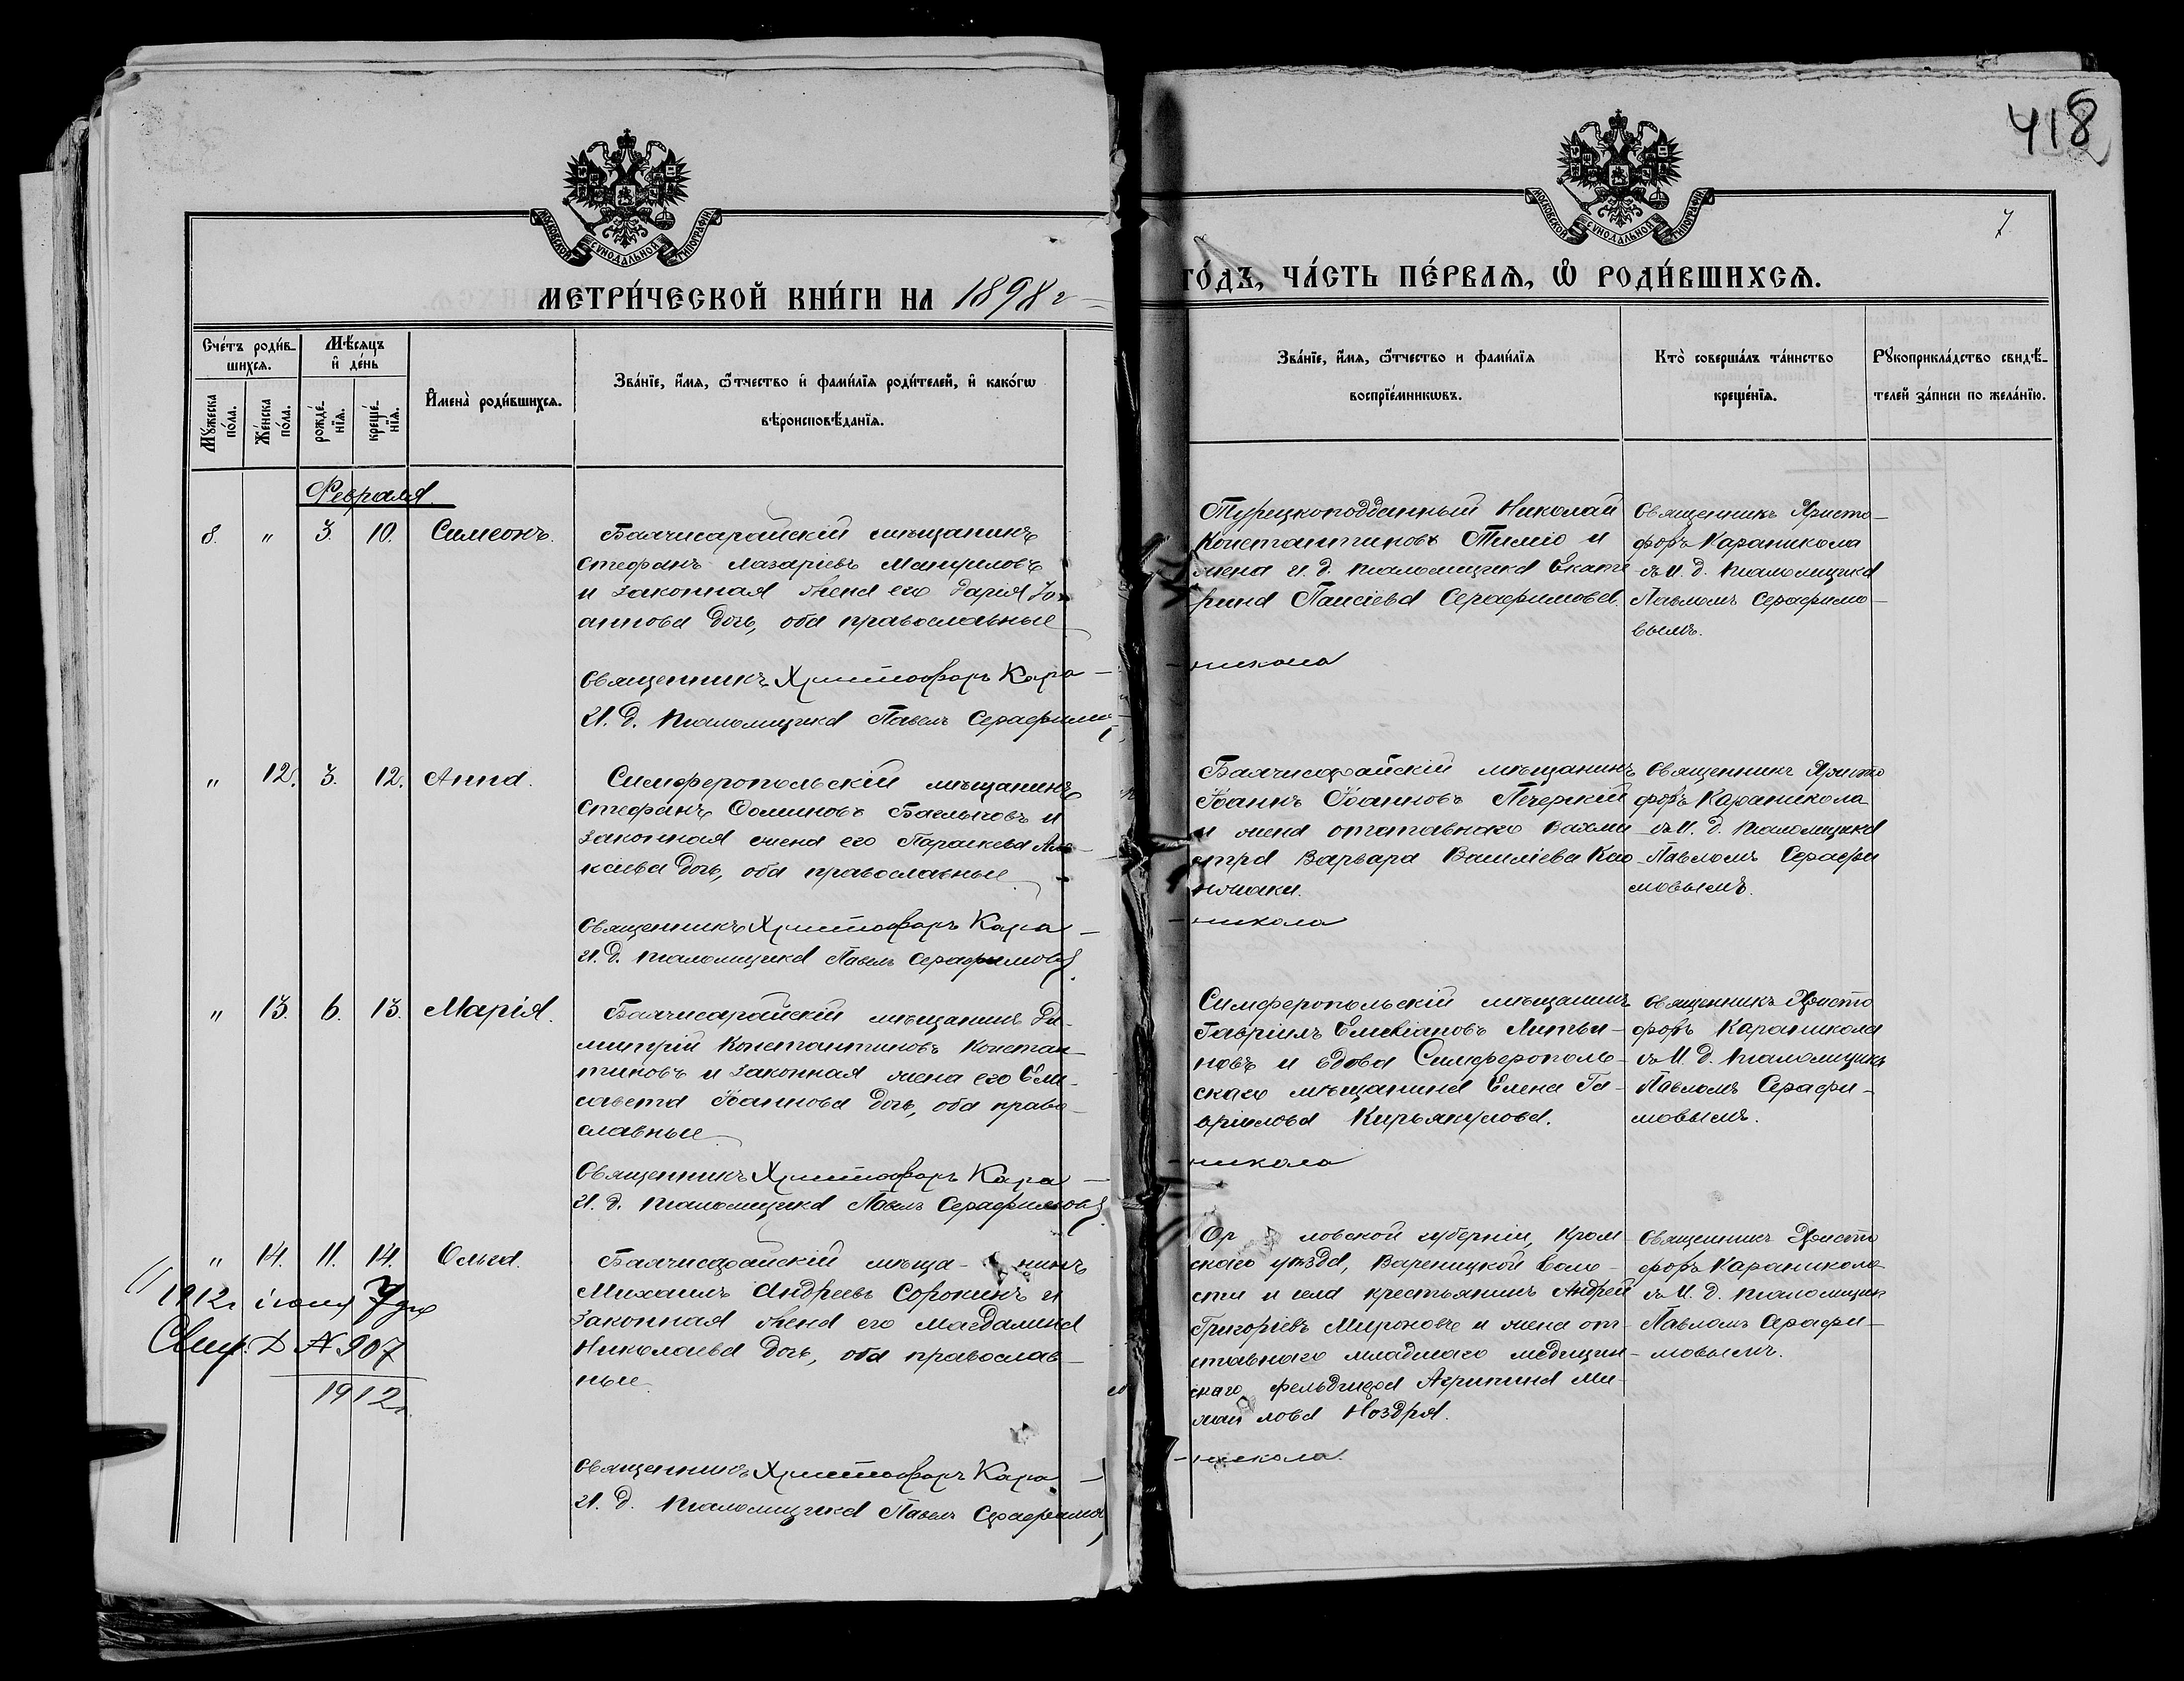 418
7
МОСКОВСКОЙ СУНОДАЛЬНОЙ ТИПОГРАФІИ
МОСКОВСКОЙ СУНОДАЛЬНОЙ ТИПОГРАФІИ
МЕТРИ́ЧЕСКОЙ КНИ́ГИ НА 1898 г
ГО́ДЪ, ЧА́СТЬ ПЕ́РВАЯ, Ѡ РОДИ́ВШИХСЯ.
Сче́тъ роди́в-
шихся.
Мѣ́сяцъ
и де́нь
Мꙋ́жеска по́ла.
Же́нска по́ла.
рожде́-
нїя.
креще́-
нїя.
И҆мена̀ роди́вшихся.
Зва́нїе, и҆́мя, ѻ҆́тчество и҆ фами́лїя роди́телей, и҆ како́гѡ
вѣроисповѣ́данїя.
Зва́нїе, и҆́мя, ѻ҆́тчество и фами́лїя
воспрїе́мникѡвъ.
Кто̀ соверша́лъ та́инство
креще́нїя.
Рꙋкоприкла́дство свидѣ́-
телей за́писи по жела́нїю.
Февраля.
8. " 3. 10. Симеонъ.
Бахчисарайскій мѣщанинъ
Стефанъ Лазаріевъ Мануиловъ
и законная жена его Дарія Іо-
аннова дочь, оба православные
Священникъ Христофоръ Кара-
И. д. псаломщика Павелъ Серафимо
Турецкоподданный Николай
Константиновъ Тиміо и
жена и. д. псаломщика Екате
рина Паисіева Серафимова.
никола
Священникъ Христо-
форъ Караникола
съ И. д. псаломщика
Павломъ Серафимо-
вымъ.
" 12. 3. 12. Анна.
Симферопольскій мѣщанинъ
Стефанъ Фоминовъ и
законная жена его Параскева Але-
ксѣева дочь, оба православные
Священникъ Христофоръ Кара-
И. д. псаломщика Павелъ Серафимовъ
Бахчисарайскій мѣщанинъ
Іоаннъ Іоанновъ Печерскій
и жена отставнаго вахми
стра Варвара Василіева
никола
Священникъ Христо
форъ Караникола
съ И. д. псаломщика
Павломъ Серафи
мовымъ.
" 13. 6. 13. Марія.
Бахчисарайскій мѣщанинъ Ди-
митрій Константиновъ Констан-
тиновъ и законная жена его Ели-
савета Іоаннова дочь, оба право-
славные
Священникъ Христофоръ Кара-
И. д. псаломщика Павелъ Серафимовъ
Симферопольскій мѣщанинъ
Гавріилъ Литви-
новъ и вдова Симферополь-
скаго мѣщанина Елена Га-
вріилова Кирьякулова.
никола
Священникъ Христо
форъ Караникола
съ И. д. псаломщика
Павломъ Серафи-
мовымъ.
" 14. 11. 14. Ольга.
1912г іюня 7 дня
Свид. № 907
1912г.
Бахчисарайскій мѣща- нинъ
Михаилъ Андреевъ Сорокинъ и
законная жена его Магдалина
Николаева дочь, оба православ-
ные
Священникъ Христофоръ Кара-
И. д. псаломщика Павелъ Серафимов
Ор ловской губерніи, Кром
скаго уѣзда, Вареницкой воло-
сти и села крестьянинъ Андрей
Григоріевъ Мироновъ и жена от-
ставнаго младшаго медицин-
скаго фельдшера Агрипина Ми-
хаи лова Ноздря.
никола.
Священникъ Христо
форъ Караникола
съ И. д. псаломщик
Павломъ Серафи-
мовымъ.